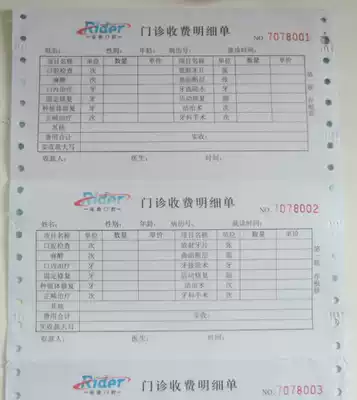 Rider 门诊收费明细单 NO 7078001
姓名: 性别: 年龄: 病历号: 就诊时间:
项目名称 单位 数量 单价 项目名称 单位 数量 单价
口腔检查 次 张
麻醉 次 曲面断层 张
口内治疗 牙 牙拔除术 牙
固定修复 牙 活动修复
种植体修复 牙 洁治术 次
正畸治疗 次 牙科手术 次
其他
费用合计 实收:
实收款大写
收款人: 医生: 时间:
Rider 门诊收费明细单 NO 7078002
姓名: 性别: 年龄: 病历号: 就诊时间:
项目名称 单位 数量 单价 项目名称 单位 数量 单价
口腔检查 次 张
麻醉 次 曲面断层 张
口内治疗 牙 牙拔除术 牙
固定修复 牙 活动修复
种植体修复 牙 洁治术 次
正畸治疗 次 牙科手术 次
其他
费用合计 实收:
实收款大写
收款人: 医生: 时间:
Rider 门诊收费明细单 NO 7078003